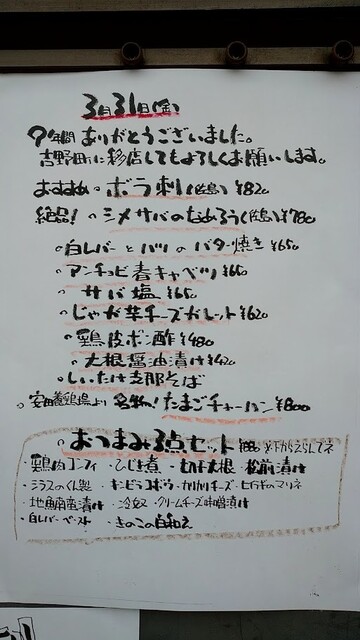 3月31日(金)
9年間ありがとうございました。
吉野町に移店してもよろしくお願いします。
おすすめ。ボラ刺 ¥820
絶品!。シメサバのなめろう ¥780
。白レバーとハツのバター焼き ¥650
。アンチョビ春キャベツ ¥650
。サバ塩 ¥650
。じゃが芋チーズガレット ¥620
。鶏皮ポン酢 ¥480
。大根醤油漬け ¥420
。しいたけ支那そば
。安田養鶏場より 名物!たまごチャーハン ¥800
。おつまみ3点セット 以下からえらんでネ
・鶏肉コンフィ ・ひじき煮 ・切干大根 ・松前漬け
・シラスの佃製 ・キンピラゴボウ ・カリカリチーズ ・ヒラタケのマリネ
・地魚南蛮漬け ・冷奴 ・クリームチーズ味噌漬け
・白レバーペースト ・きのこの白和え